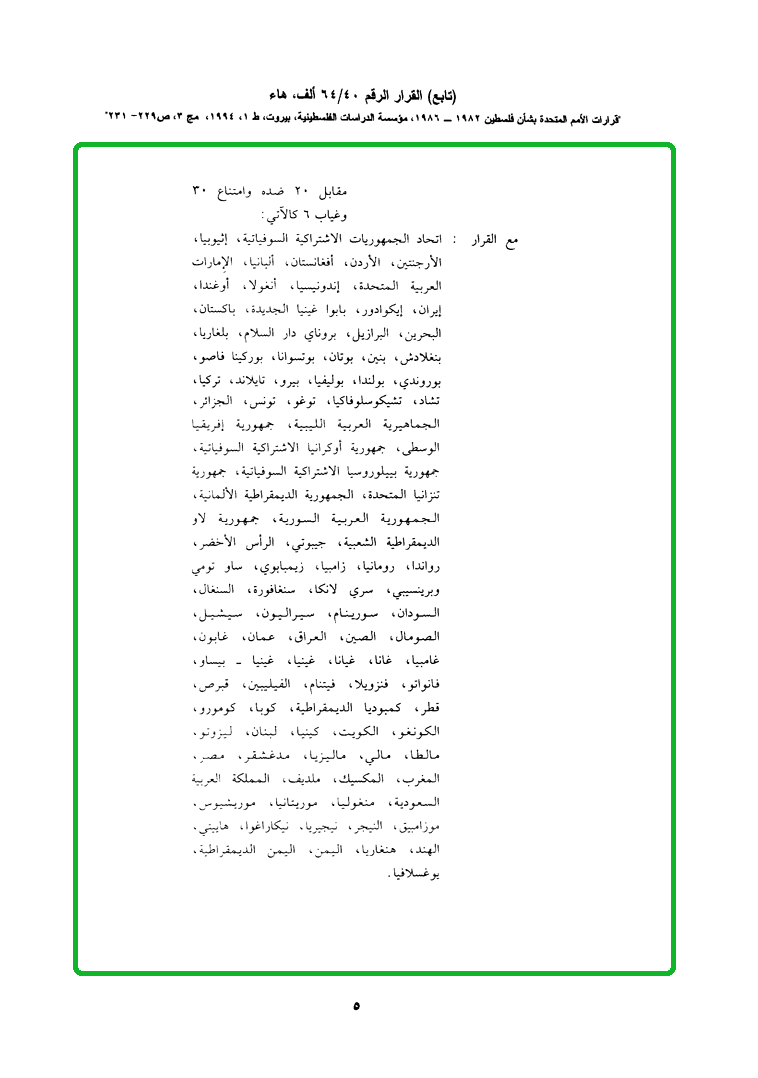 (تابع) القرار الرقم ٦٤/٤٠ ألف، هاء
"قرارات الأمم المتحدة بشأن فلسطين ١٩٨٢ ــ ١٩٨٦، مؤسسة الدراسات الفلسطينية، بيروت، ط ١، ١٩٩٤، مج ٣، ص٢٢٩- ٢٣١"
مقابل ٢٠ ضده وامتناع ٣٠
وغياب ٦ كالآتي:
مع القرار : اتحاد الجمهوريات الاشتراكية السوفياتية، إثيوبيا،
الأرجنتين، الأردن، أفغانستان، ألبانيا، الإمارات
العربية المتحدة، إندونيسيا، أنغولا، أوغندا،
إيران، إيكوادور، بابوا غينيا الجديدة، باكستان،
البحرين، البرازيل، بروناي دار السلام، بلغاريا،
بنغلادش، بنين، بوتان، بوتسوانا، بوركينا فاصو،
بوروندي، بولندا، بوليفيا، بيرو، تايلاند، تركيا،
تشاد، تشيكوسلوفاكيا، توغو، تونس، الجزائر،
الجماهيرية العربية الليبية، جمهورية إفريقيا
الوسطى، جمهورية أوكرانيا الاشتراكية السوفياتية،
جمهورية بييلوروسيا الاشتراكية السوفياتية، جمهورية
تنزانيا المتحدة، الجمهورية الديمقراطية الألمانية،
الجمهورية العربية السورية، جمهورية لاو
الديمقراطية الشعبية، جيبوتي، الرأس الأخضر،
رواندا، رومانيا، زامبيا، زيمبابوي، ساو تومي
وبرينسيبي، سري لانكا، سنغافورة، السنغال،
السودان، سورينام، سيراليون، سيشيل،
الصومال، الصين، العراق، عمان، غابون،
غامبيا، غانا، غيانا، غينيا، غينيا ـ بيساو،
فانواتو، فنزويلا، فيتنام، الفيليبين، قبرص،
قطر، كمبوديا الديمقراطية، كوبا، كومورو،
الكونغو، الكويت، كينيا، لبنان، ليزوتو،
مالطا، مالي، ماليزيا، مدغشقر، مصر،
المغرب، المكسيك، ملديف، المملكة العربية
السعودية، منغوليا، موريتانيا، موريشيوس،
موزامبيق، النيجر، نيجيريا، نيكاراغوا، هاييتي،
الهند، هنغاريا، اليمن، اليمن الديمقراطية،
يوغسلافيا.
٥